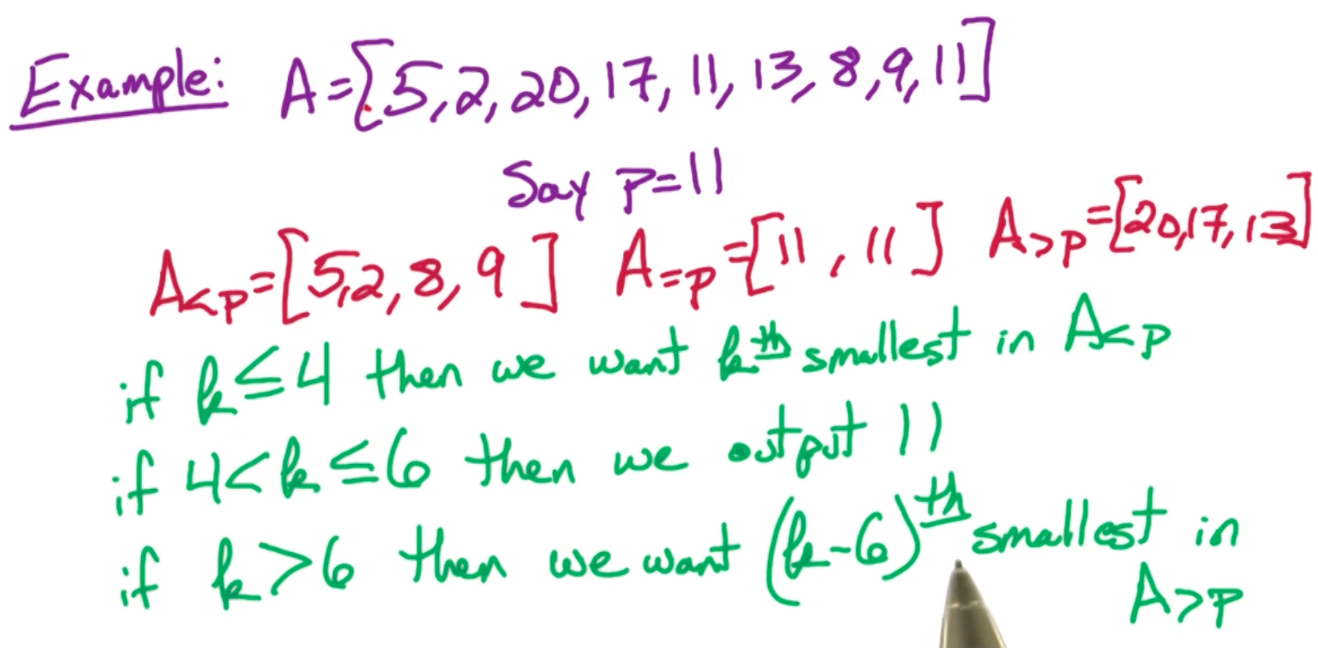 Example: A=[5,2,20,17,11,13,8,9,11]
Say p=11
A<p=[5,2,8,9] A=p=[11,11] A>p=[20,17,13]
if k≤4 then we want kth smallest in A<p
if 4<k≤6 then we output 11
if k>6 then we want (k-6)th smallest in
A>p